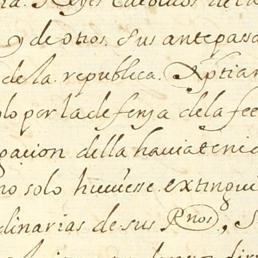 Reyes Catholicos de la
y de otros. sus antepassa
de la. republica. Xptian
olo por la defensa de la fee
gacion della haviatenid
no solo huuiesse. extingui
dinarias de sus Pnos, S